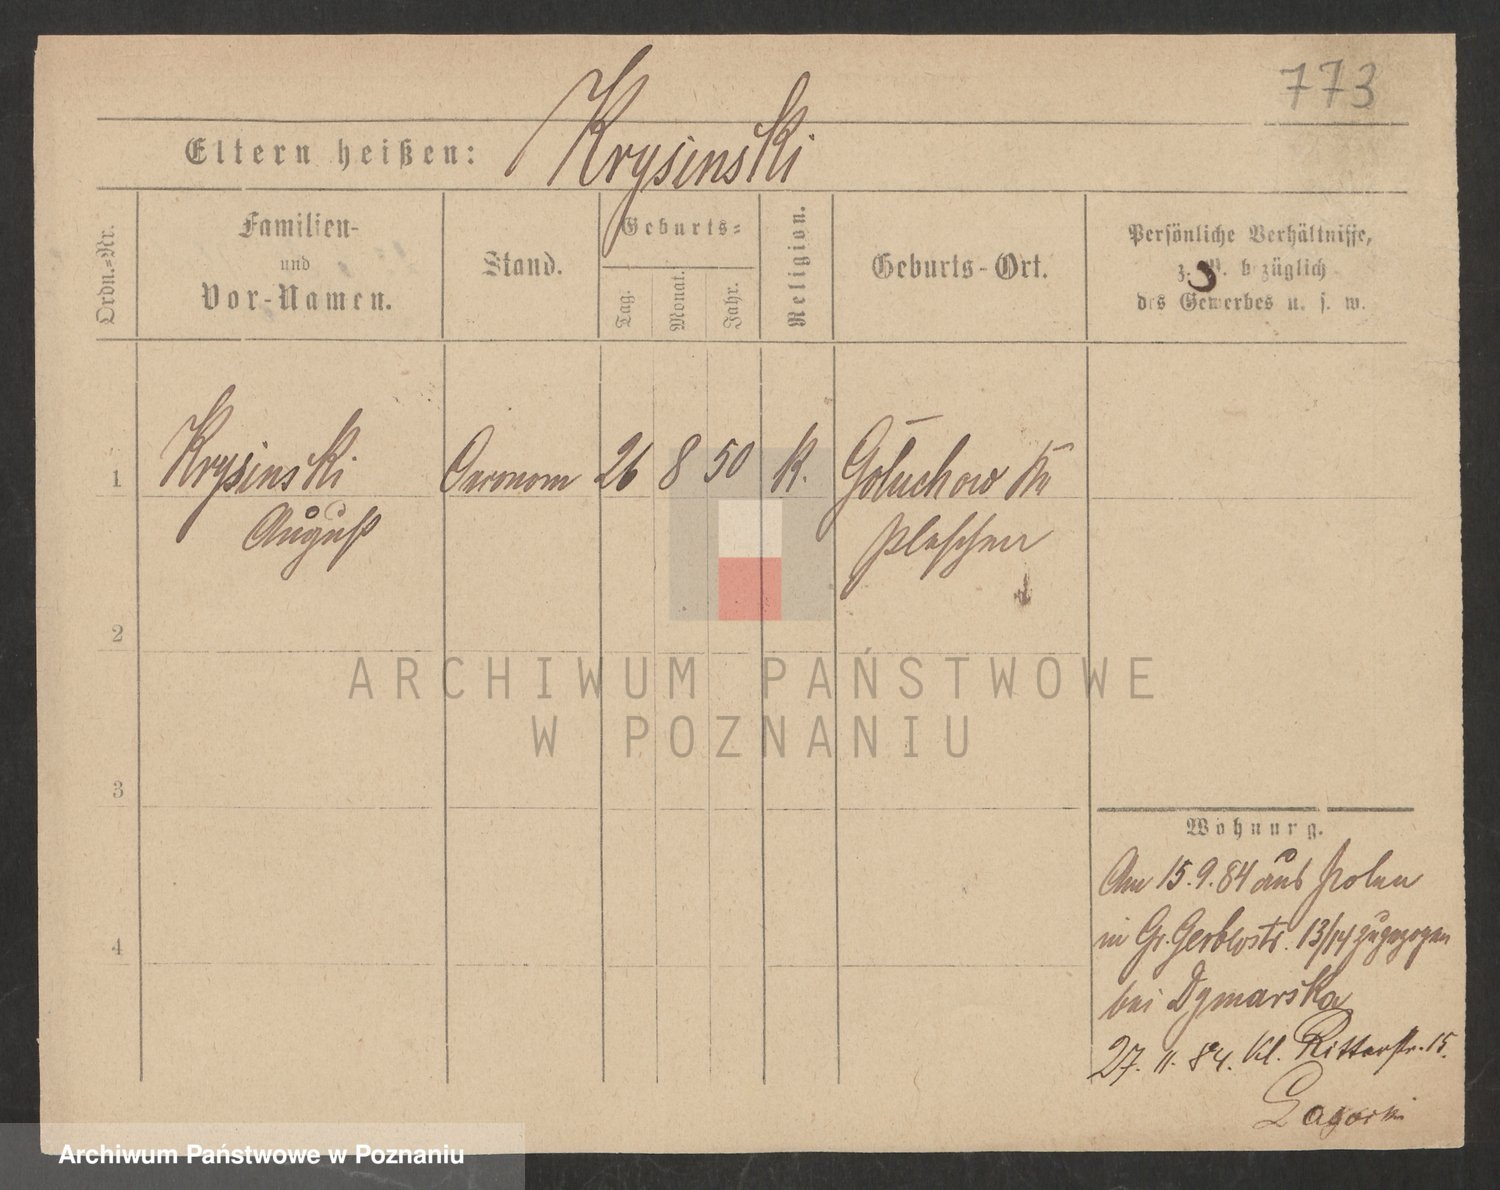 773
Eltern heißen: Krysinski
Ordn.-Nr.
Familien-
und
Vor-Namen.
Stand.
Geburts-
Tag.
Monat.
Jahr.
Religion.
Geburts-Ort.
Persönliche Verhältnisse,
z. B. bezüglich
des Gewerbes u. s. w.
1 Krysinski 26 8 50 K. Gołuchow Kr
August Pleschen
2
3
4
Wohnung.
Am 15.9.84 aus Polen
in Gr. Gerberstr. 13/14 zugezogen
bei Dymarska
27. 11. 84. Kl. Ritterstr. 15.
ARCHIWUM PAŃSTWOWE
W POZNANIU
Archiwum Państwowe w Poznaniu